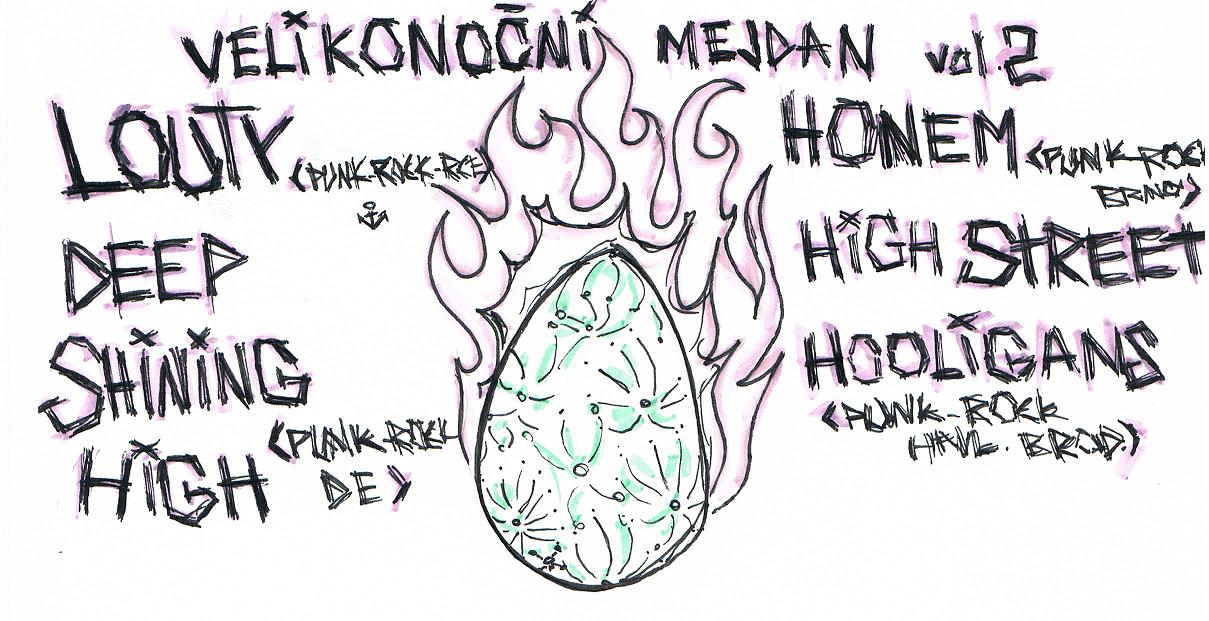 VELIKONOČNÍ MEJDAN vol 2
LOUTY (PUNK-ROCK-RCE)
DEEP
SHINING
HIGH (PUNK-ROCK
DE)
HONEM (PUNK-ROCK
BRNO)
HIGH STREET
HOOLIGANS
(PUNK-ROCK
HAVL. BROD.)